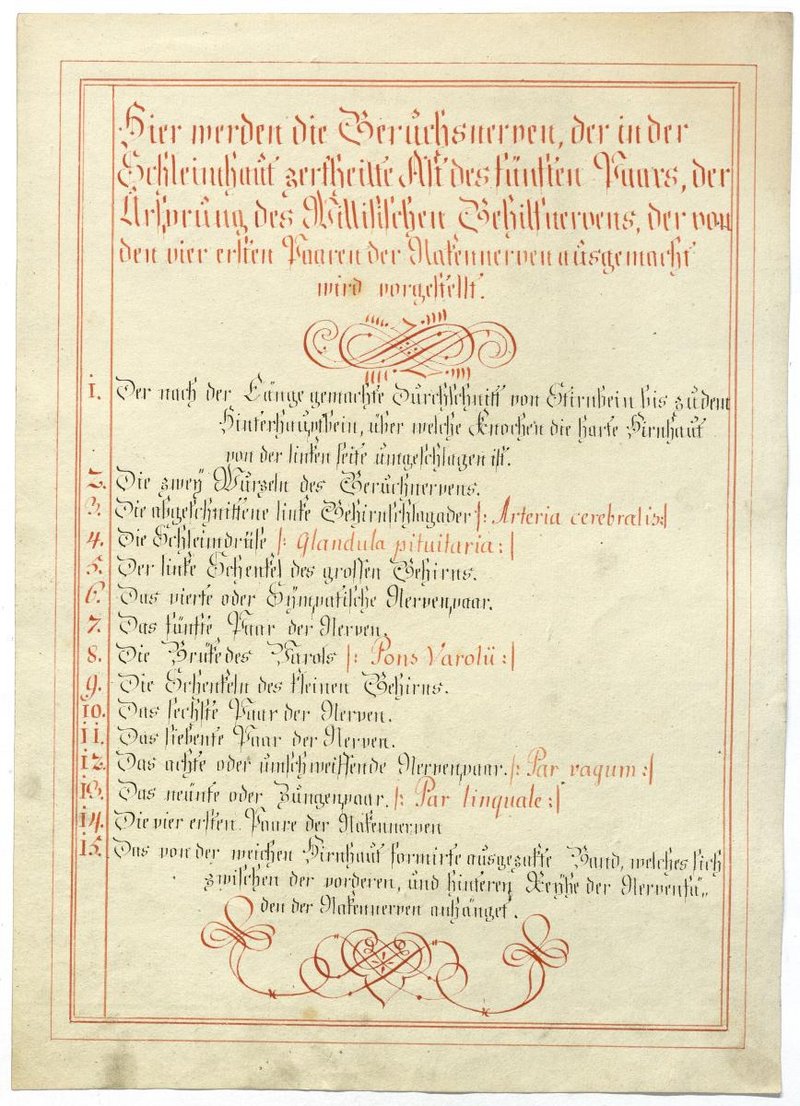 Hier werden die Geruchsnerven, der in der
Schleimhaut zertheilte Ast des fünften Paars, der
Ursprung des Willisischen Beihilfnervens, der von
den vier ersten Paaren der Nakennerven ausgemacht
wird vorgestellt.
1. Der nach der Länge gemachte Durchschnitt von Stirnbein bis zu dem
Hinterhauptbein, über welche Knochen die harte Hirnhaut
von der linken seite umgeschlagen ist.
2. Die zweÿ Wurzeln des Geruchnervens.
3. Die abgeschnittene linke Gehirnschlagader |: Arteria cerebralis:|
4. Die Schleimdrüse |: Glandula pituitaria :|
5. Der linke Schenkel des grossen Gehirns.
6. Das vierte oder Sÿmpatische Nervenpaar.
7. Das fünfte Paar der Nerven.
8. Die Brüke des Varols |: Pons Varolii :|
9. Die Schenkeln des kleinen Gehirns.
10. Das sechste Paar der Nerven.
11. Das siebente Paar der Nerven.
12. Das achte oder umschweissende Nervenpaar. |: Par vagum :|
13. Das neunte oder Zungenpaar. |: Par linquale :|
14. Die vier ersten Paare der Nakennerven
15. Das von der weichen Hirnhaut formirte ausgezakte Band, welches sich
zwischen der vorderen, und hinteren Reÿhe der Nervenfä„
den der Nakennerven anhänget.